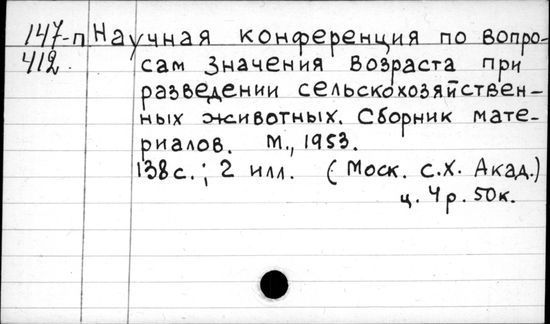 147-п Научная конференция по вопро-
412. сам значения возраста при
разведении сельскохозяйствен-
ных животных. Сборник мате-
риалов. М., 1953.
138 с.; 2 илл. (Моск. с.х. Акад.)
ц. 4 р. 50 к.